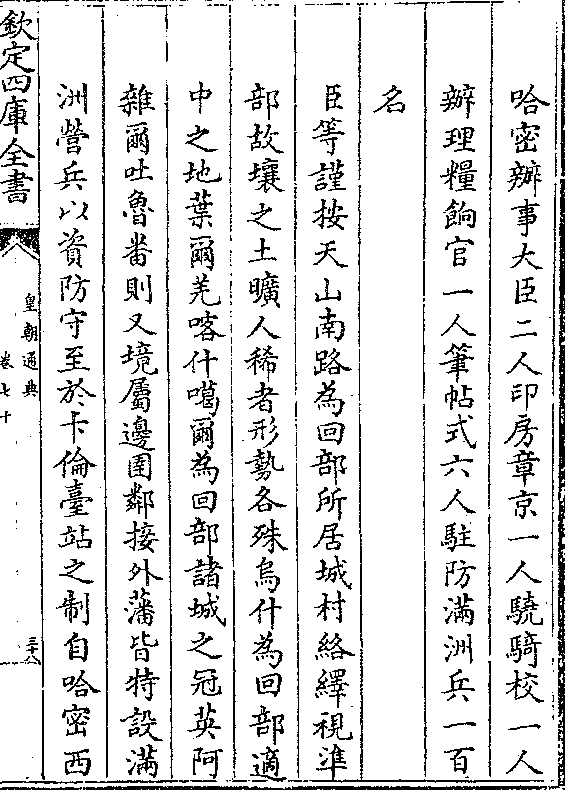 哈密辦事大臣二人印房章京一人驍騎校一人
辦理糧餉官一人筆帖式六人駐防滿洲兵一百
名
臣等謹按天山南路為回部所居城村絡繹視準
部故壤之土曠人稀者形勢各殊烏什為回部適
中之地葉爾羌喀什噶爾為回部諸城之冠英阿
雜爾吐魯番則又境屬邊圉鄰接外藩皆特設滿
洲營兵以資防守至於卡倫臺站之制自哈密西
欽定四庫全書
皇朝通典
卷七十
三十八